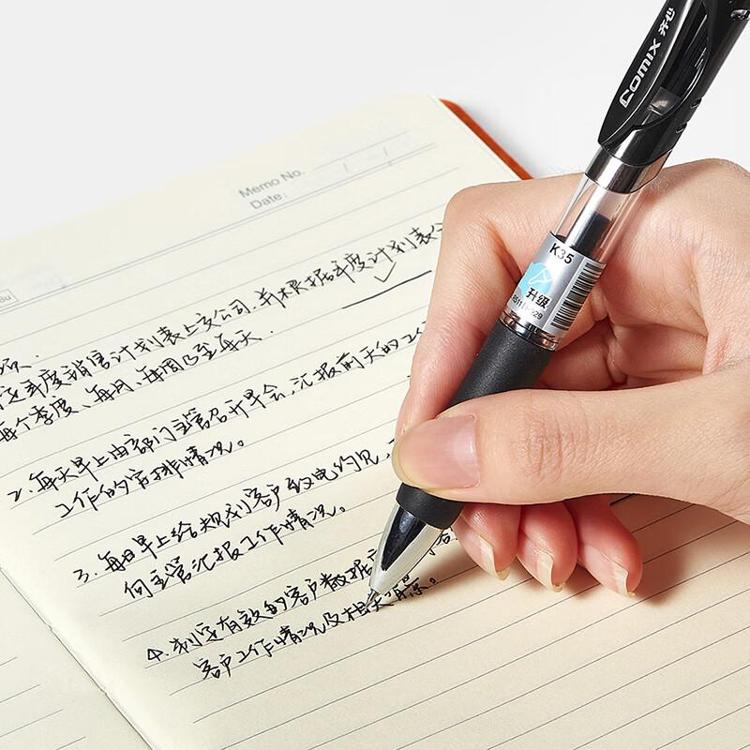 Comix 齐心
K35
升级
Memo No.
Date:
年度销售计划表上交公司,并根据年度计划表
每个季度、每月、每周乃至每天.
2.每天早上由部门主管召开早会,汇报前天的工
工作的安排情况。
3.每日早上给规划客户致电约见
向主管汇报工作情况。
4.制定有效的客户数据
客户工作情况及相关